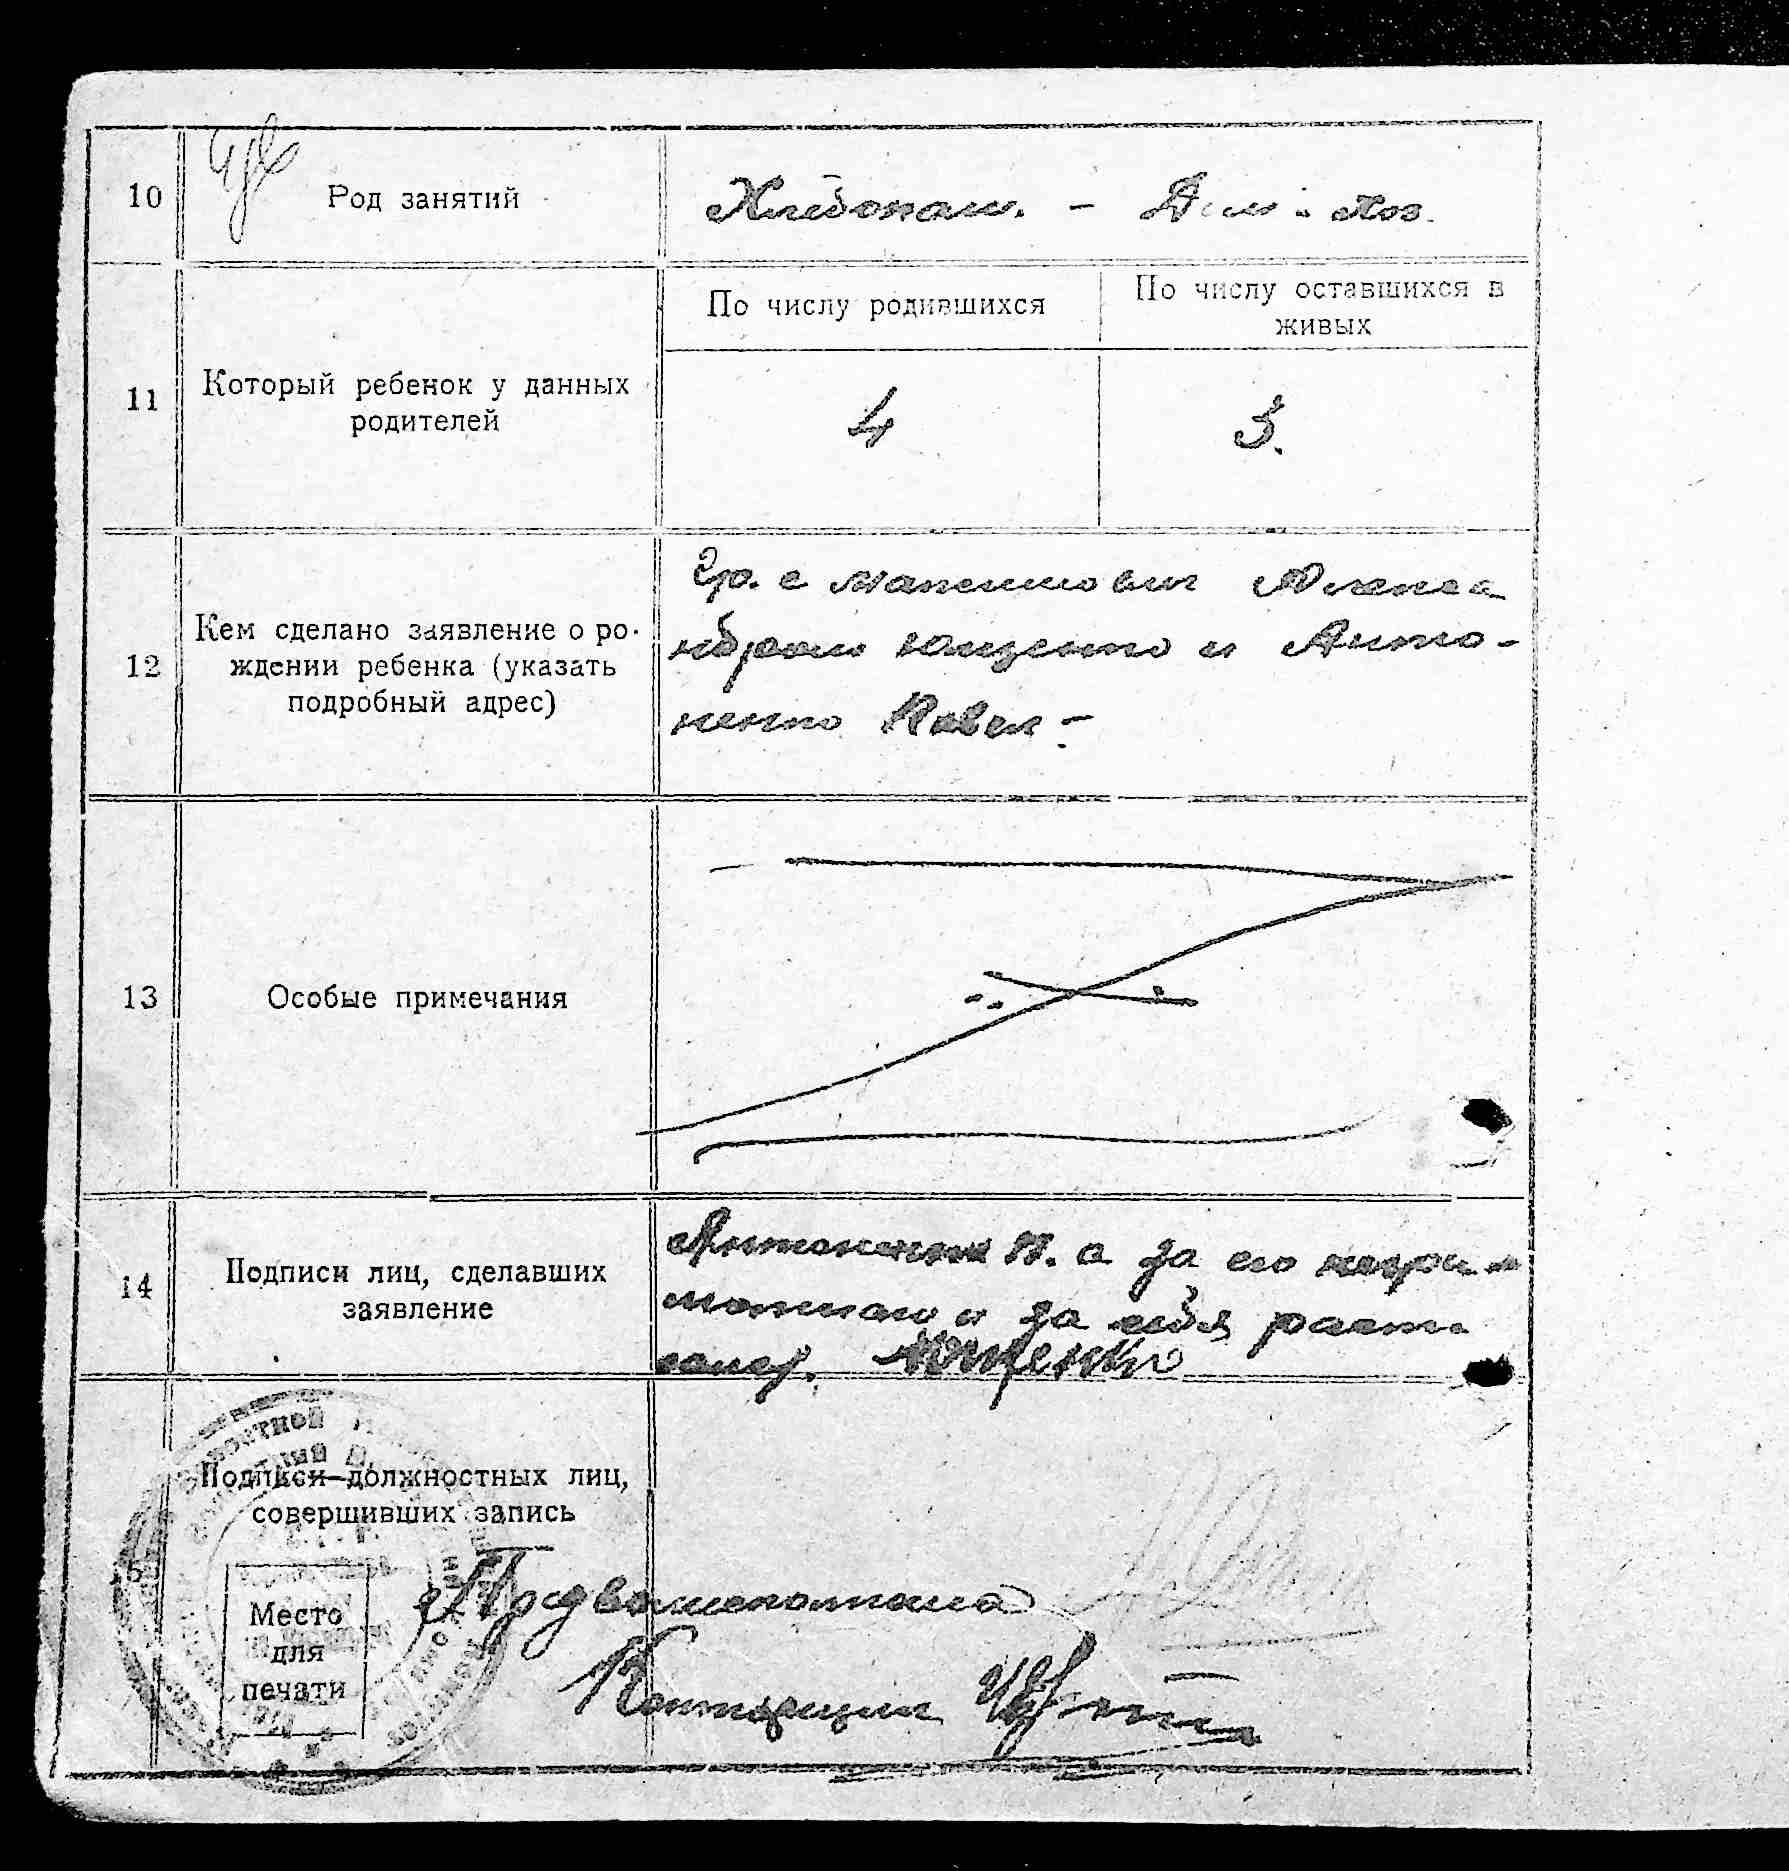 10
Род занятий
Хлебопаш. - Дом. хоз.
11
Который ребенок у данных
родителей
По числу родившихся
По числу оставшихся в
живых
4
3.
12
Кем сделано заявление о ро-
ждении ребенка (указать
подробный адрес)
Гр. с
Алекса
ндром Ющенко и Анто-
ненко Павел -
13
Особые примечания
14
Подписи лиц, сделавших
заявление
Антоненко П. а за его неграм
отного и за себя распи
сался. Ющенко
15
Подписи должностных лиц,
совершивших запись
Место
для
печати
Предволисполкома